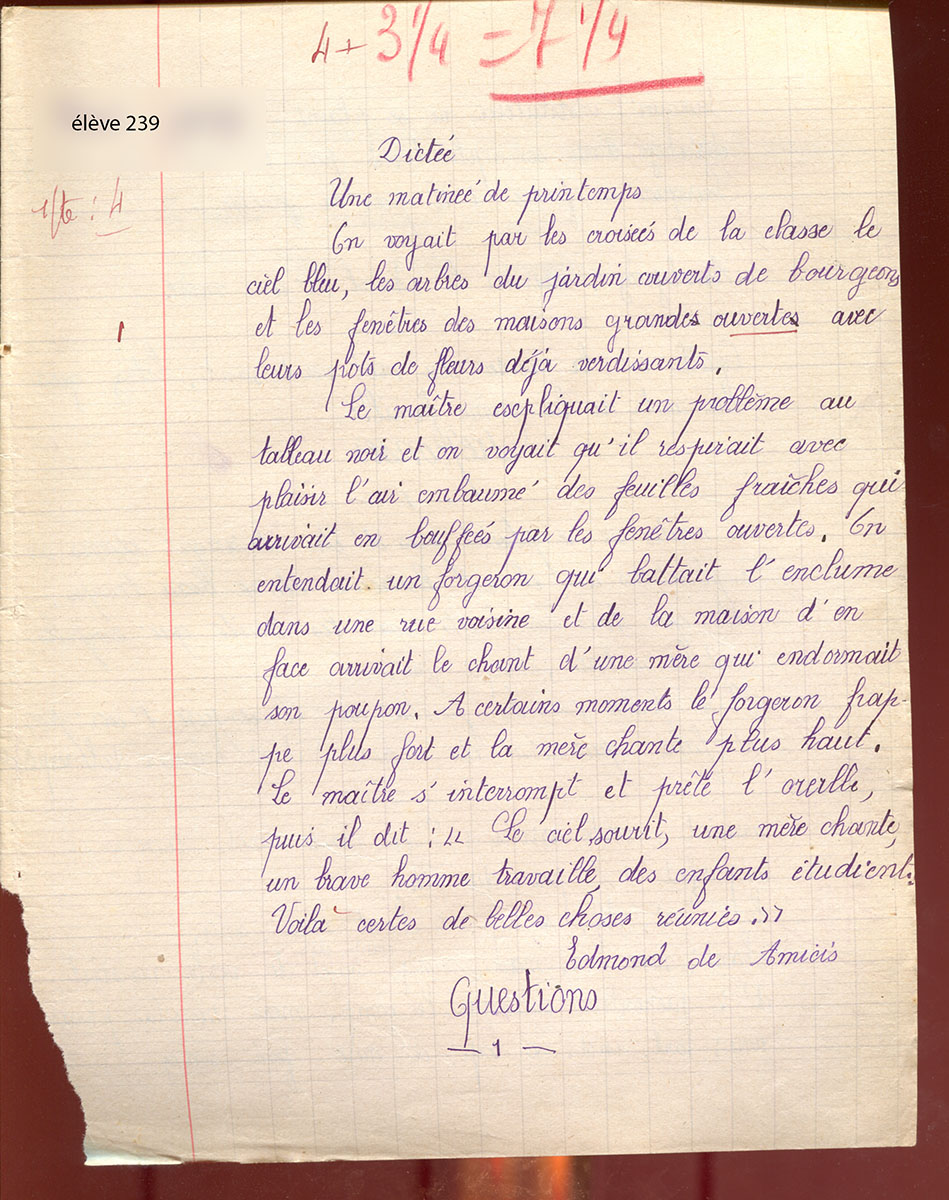 4 + 3 1/4 = 7 1/4
élève 239
Dictée
Une matinée de printemps
: 4
On voyait par les croisées de la classe le
ciel bleu, les arbres du jardin couverts de bourgeons
1
et les fenêtres des maisons grandes ouvertes avec
leurs pots de fleurs déjà verdissants.
Le maître escpliquait un problème au
tableau noir et on voyait qu'il respirait avec
plaisir l'air embaumé des feuilles fraîches qui
arrivait en bouffées par les fenêtres ouvertes. On
entendait un forgeron qui battait l'enclume
dans une rue voisine et de la maison d'en
face arrivait le chant d'une mère qui endormait
son poupon. A certains moments le forgeron frap-
pe plus fort et la mère chante plus haut.
Le maître s'interrompt et prête l'oreille,
puis il dit : << Le ciel sourit, une mère chante,
un brave homme travaille, des enfants étudient.
Voilà certes de belles choses réunies. >>
Edmond de Amicis
Questions
— 1 —